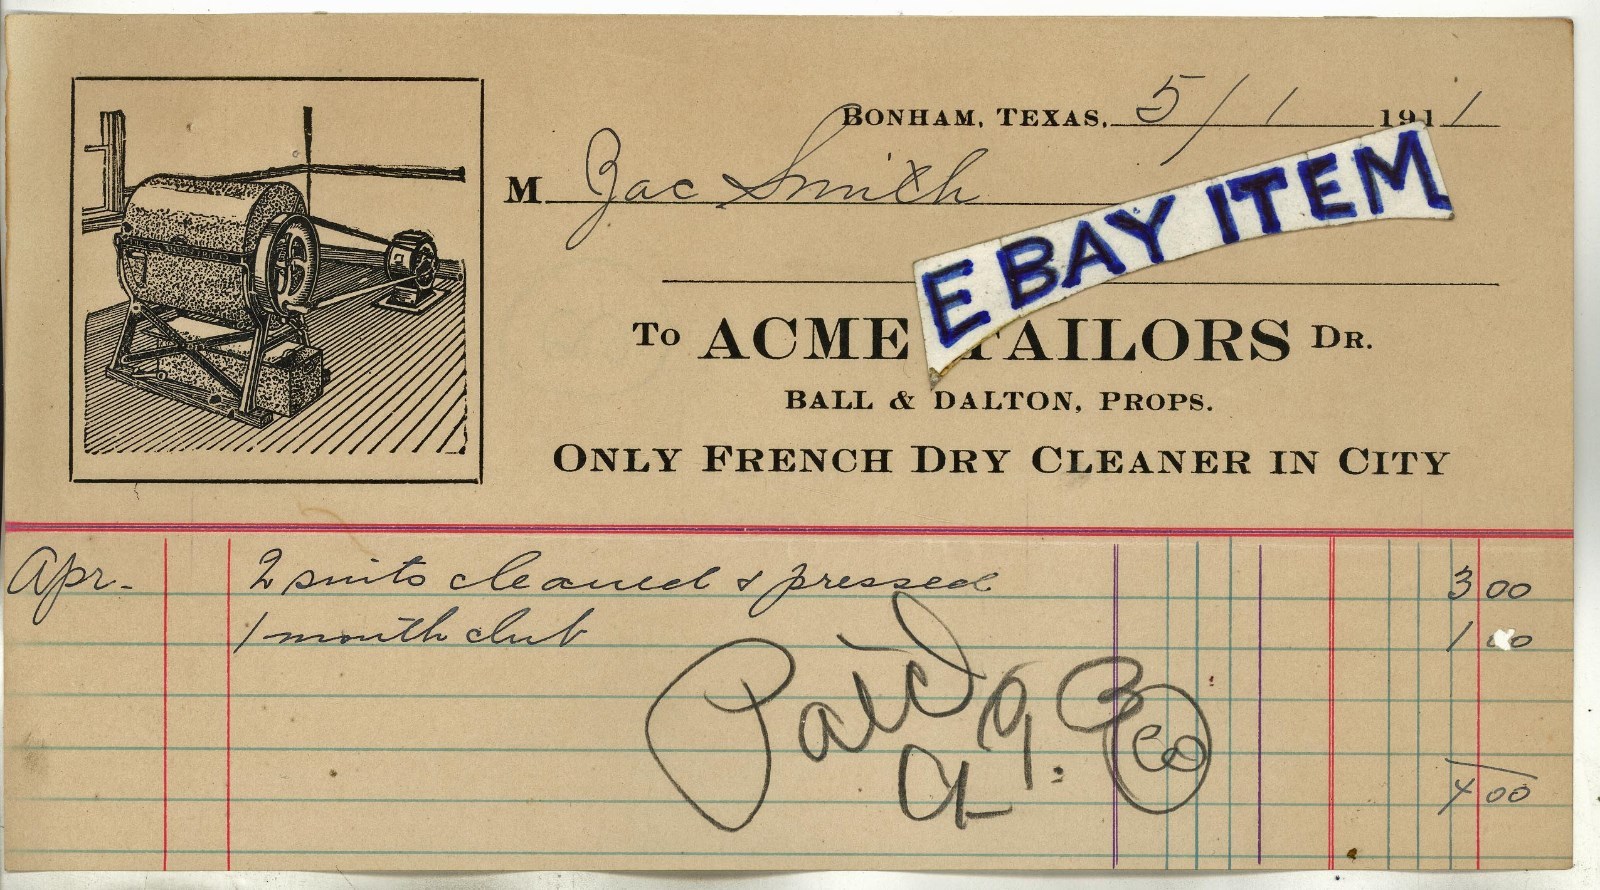 BONHAM, TEXAS, 5/1 1911
M. Zac Smith
EBAY ITEM
To ACME TAILORS DR.
BALL & DALTON, PROPS.
ONLY FRENCH DRY CLEANER IN CITY
Apr- 2 suits cleaned & pressed 3 00
1 month club 1 00
Paid
4 00